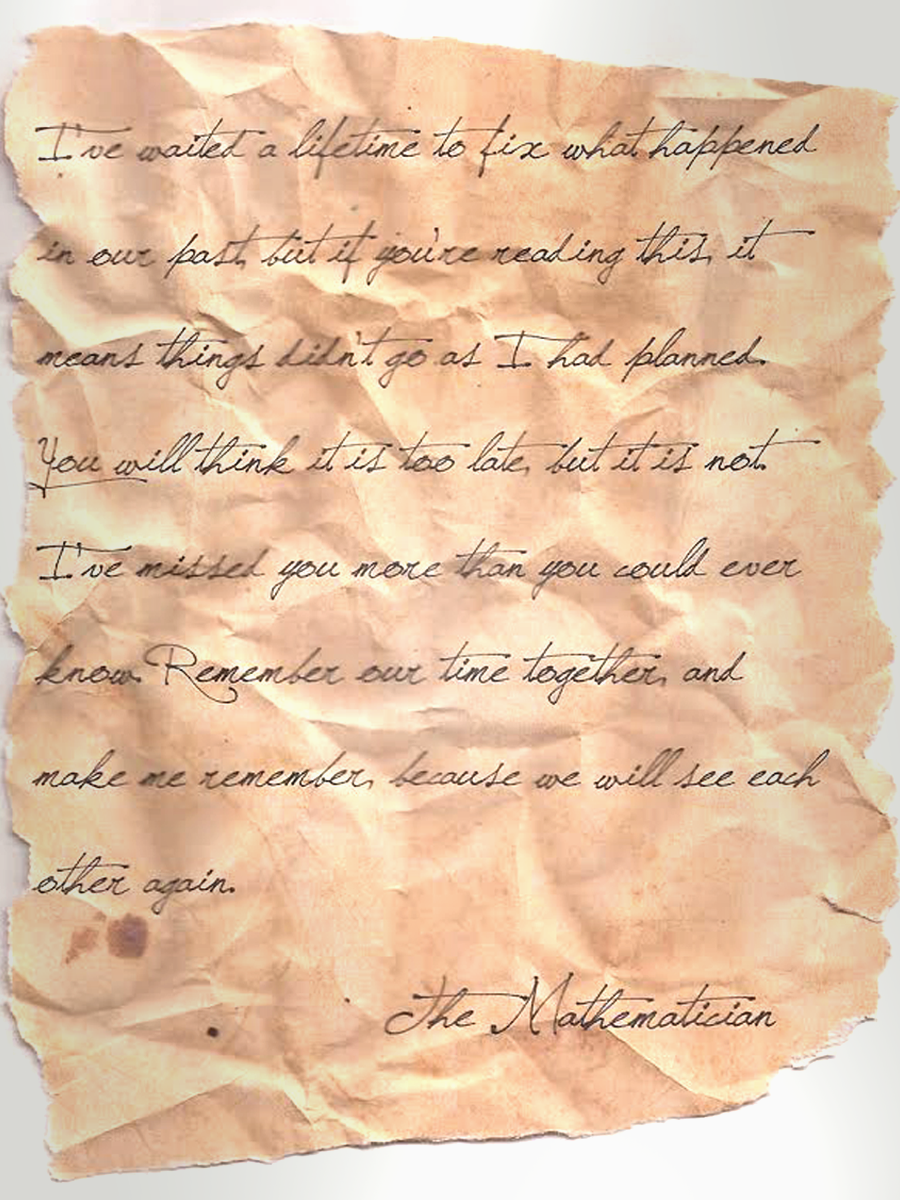 I've waited a lifetime to fix what happened
in our past, but if you're reading this, it
means things didn't go as I had planned.
You will think it is too late, but it is not.
I've missed you more than you could ever
know. Remember our time together, and
make me remember, because we will see each
other again.
The Mathematician